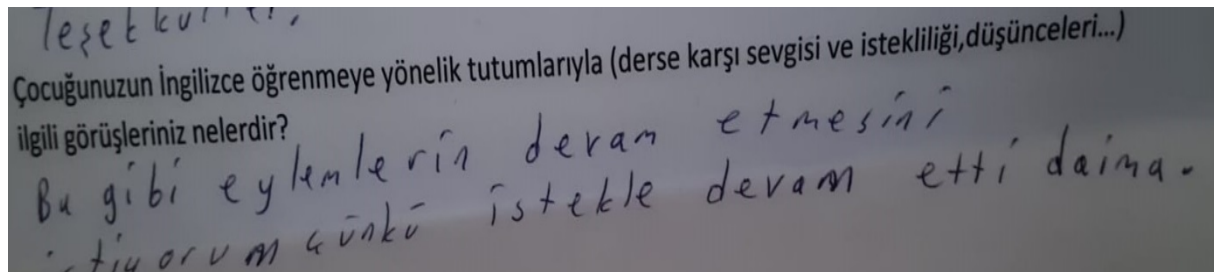 Teşekkürler.
Çocuğunuzun İngilizce öğrenmeye yönelik tutumlarıyla (derse karşı sevgisi ve istekliliği,düşünceleri...)
ilgili görüşleriniz nelerdir?
Bu gibi eylemlerin devam etmesini
istiyorum çünkü istekle devam etti daima.